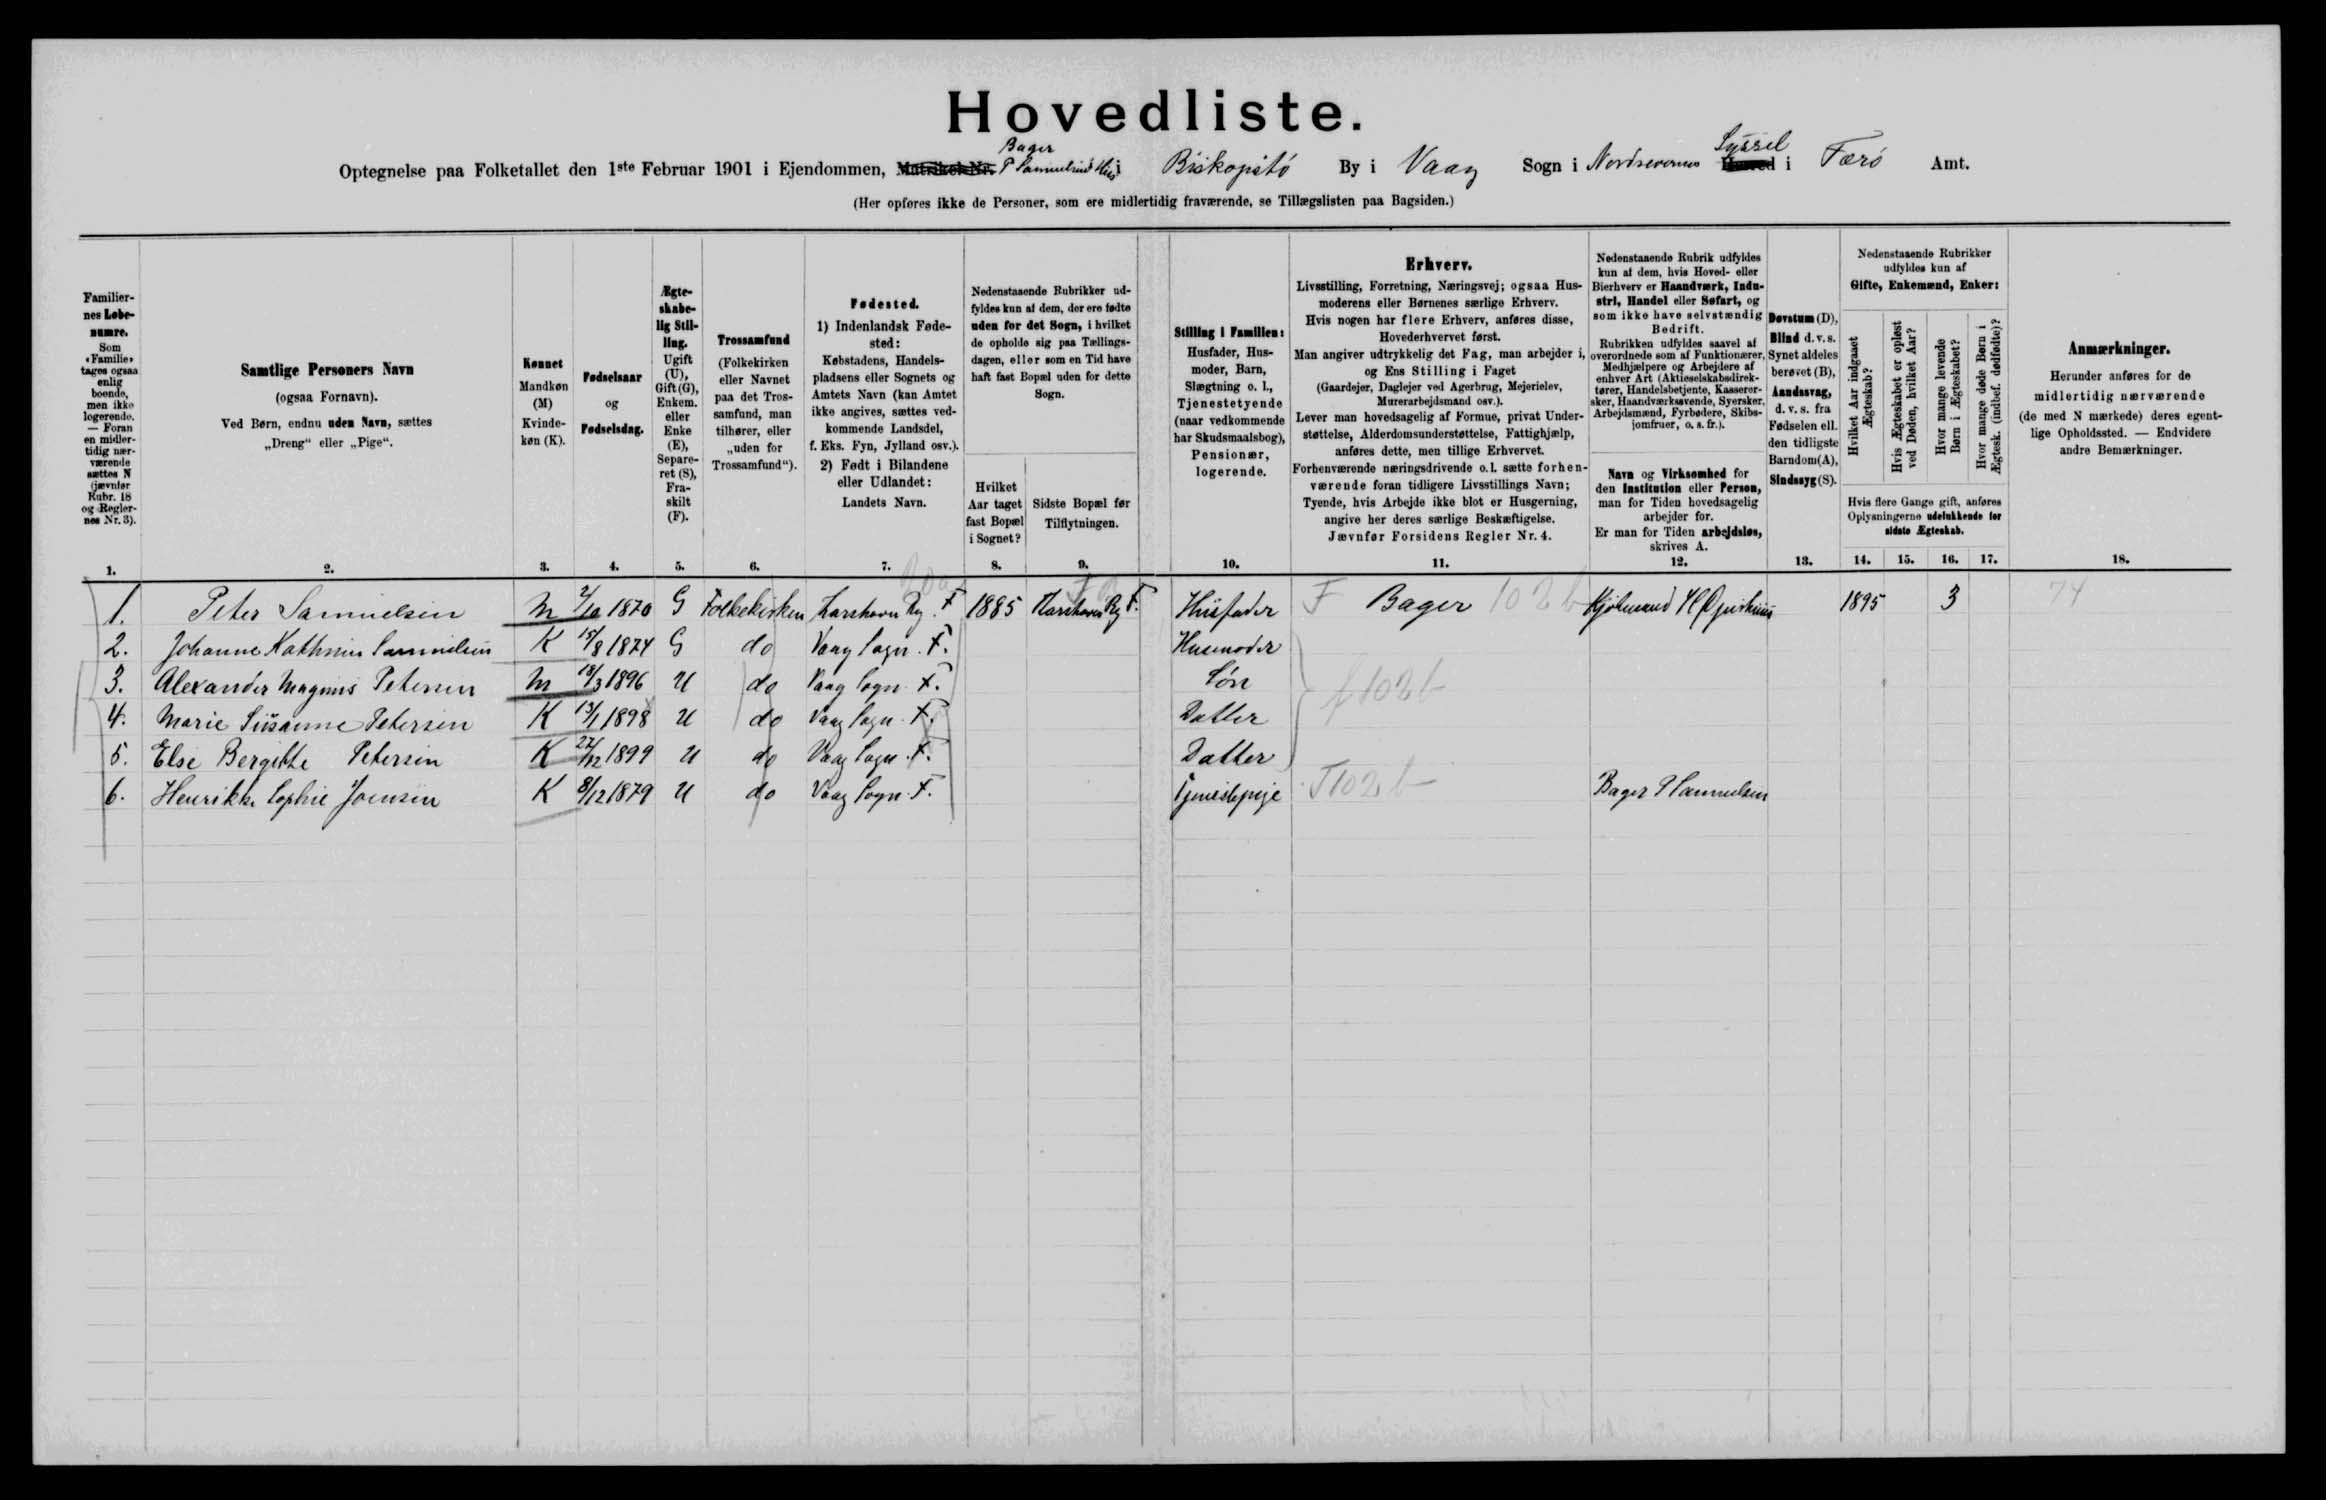 Hovedliste.
Bager Syssel
Optegnelse paa Folketallet den 1ste Februar 1901 i Ejendommen, Matrikel-Nr. P Samuelsens Hus i Biskopstö By i Vaag Sogn i Norderøernes Herred i Færö Amt.
(Her opføres ikke de Personer, som ere midlertidig fraværende, se Tillægslisten paa Bagsiden.)
Familier-
nes Løbe-
numre.
Som
«Familie»
tages ogsaa
enlig
boende,
men ikke
logerende.
— Foran
en midler-
tidig nær-
værende
sættes N
(jævnfør
Rubr. 18
og Regler-
nes Nr. 3).
Samtlige Personers Navn
(ogsaa Fornavn).
Ved Børn, endnu uden Navn, sættes
„Dreng“ eller „Pige“.
Kønnet
Mandkøn
(M)
Kvinde-
køn (K).
Fødselsaar
og
Fødselsdag.
Ægte-
skabe-
lig Stil-
ling.
Ugift
(U),
Gift (G),
Enkem.
eller
Enke
(E),
Separe-
ret (S),
Fra-
skilt
(F).
Trossamfund
(Folkekirken
eller Navnet
paa det Tros-
samfund, man
tilhører, eller
„uden for
Trossamfund“).
Fødested.
1) Indenlandsk Føde-
sted:
Købstadens, Handels-
pladsens eller Sognets og
Amtets Navn (kan Amtet
ikke angives, sættes ved-
kommende Landsdel,
f. Eks. Fyn, Jylland osv.).
2) Født i Bilandene
eller Udlandet:
Landets Navn.
Nedenstaaende Rubrikker ud-
fyldes kun af dem, der ere fødte
uden for det Sogn, i hvilket
de opholde sig paa Tællings-
dagen, eller som en Tid have
haft fast Bopæl uden for dette
Sogn.
Hvilket
Aar taget
fast Bopæl
i Sognet?
Sidste Bopæl før
Tilflytningen.
Stilling i Familien:
Husfader, Hus-
moder, Barn,
Slægtning o. l.,
Tjenestetyende
(naar vedkommende
har Skudsmaalsbog),
Pensionær,
logerende.
Erhverv.
Livsstilling, Forretning, Næringsvej; ogsaa Hus-
moderens eller Børnenes særlige Erhverv.
Hvis nogen har flere Erhverv, anføres disse,
Hovederhvervet først.
Man angiver udtrykkelig det Fag, man arbejder i,
og Ens Stilling i Faget
(Gaardejer, Daglejer ved Agerbrug, Mejerielev,
Murerarbejdsmand osv.).
Lever man hovedsagelig af Formue, privat Under-
støttelse, Alderdomsunderstøttelse, Fattighjælp,
anføres dette, men tillige Erhvervet.
Forhenværende næringsdrivende o. l. sætte forhen-
værende foran tidligere Livsstillings Navn;
Tyende, hvis Arbejde ikke blot er Husgerning,
angive her deres særlige Beskæftigelse.
Jævnfør Forsidens Regler Nr. 4.
Nedenstaaende Rubrik udfyldes
kun af dem, hvis Hoved- eller
Bierhverv er Haandværk, Indu-
stri, Handel eller Søfart, og
som ikke have selvstændig
Bedrift.
Rubrikken udfyldes saavel af
overordnede som af Funktionærer,
Medhjælpere og Arbejdere af
enhver Art (Aktieselskabsdirek-
tører, Handelsbetjente, Kasserer-
sker, Haandværkssvende, Syersker,
Arbejdsmænd, Fyrbødere, Skibs-
jomfruer, o. s. fr.).
Navn og Virksomhed for
den Institution eller Person,
man for Tiden hovedsagelig
arbejder for.
Er man for Tiden arbejdsløs,
skrives A.
Døvstum (D),
Blind d. v. s.
Synet aldeles
berøvet (B),
Aandssvag,
d. v. s. fra
Fødselen ell.
den tidligste
Barndom(A),
Sindssyg (S).
Nedenstaaende Rubrikker
udfyldes kun af
Gifte, Enkemænd, Enker:
Hvilket Aar indgaaet
Ægteskab?
Hvis Ægteskabet er opløst
ved Døden, hvilket Aar?
Hvor mange levende
Børn i Ægteskabet?
Hvor mange døde Børn i
Ægtesk. (indbef. dødfødte)?
Hvis flere Gange gift, anføres
Oplysningerne udelukkende for
sidste Ægteskab.
Anmærkninger.
Herunder anføres for de
midlertidig nærværende
(de med N mærkede) deres egent-
lige Opholdssted. — Endvidere
andre Bemærkninger.
1. 2. 3. 4. 5. 6. 7. 8. 9. 10. 11. 12. 13. 14. 15. 16. 17. 18.
1. Peter Samuelsen M 2/10 1870 G Folkekirken F 1885 F. Husfader F Bager 102 b Kjøbmand 1895 3 74
2. Johanne Kathrine Samuelsen K 15/8 1874 G do Vaag Sogn. F. Husmoder
3. Alexander Magnus Petersen M 18/3 1896 U do Vaag Sogn. F. Sön f 102 b
4. Marie Susanne Petersen K 13/1 1898 U do Vaag Sogn. F. Datter
5. Else Bergitte Petersen K 27/12 1899 U do Vaag Sogn. F. Datter
6. Henrikke Sophie Joensen K 8/12 1879 U do Vaag Sogn. F. Tjenestepige T 102 b Bager P Samuelsen